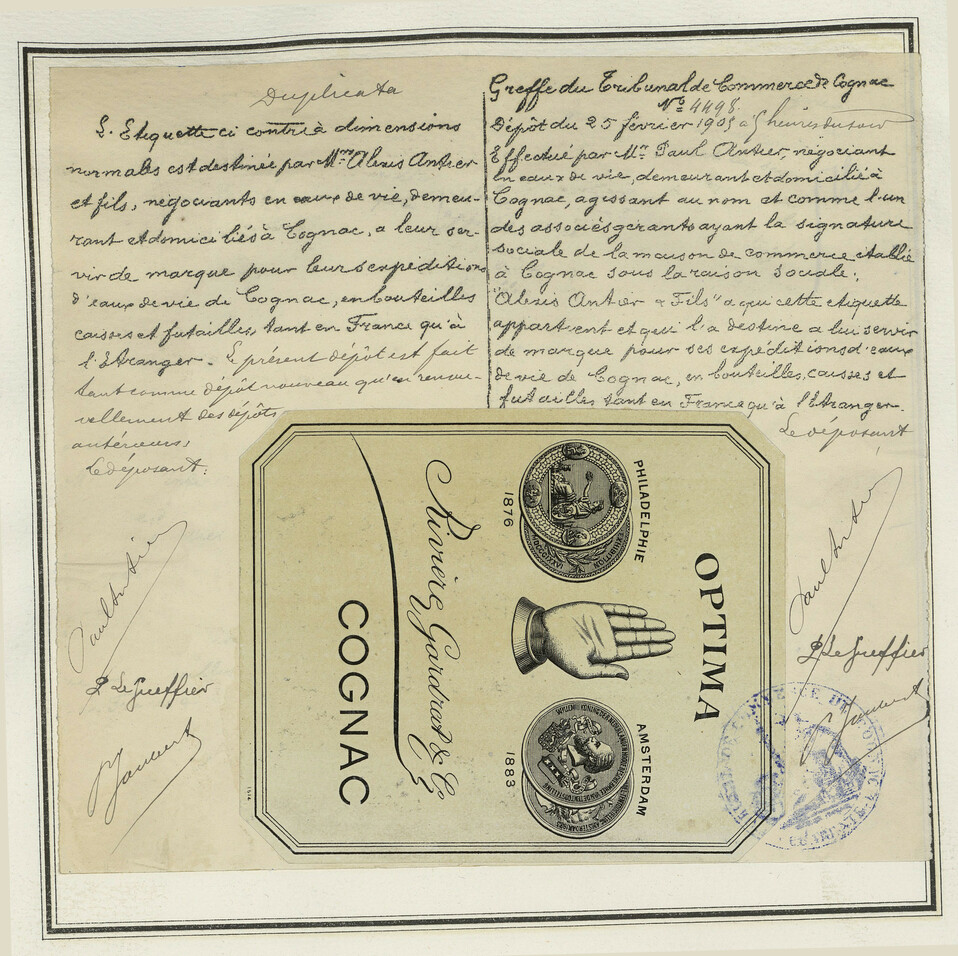 Duplicata
L'Etiquette ci contre à dimensions
normales est destinée par Mrs Alexis Antier
et fils, négociants en eaux de vie, demeu-
rant et domiciliés à Cognac, a leur ser-
vir de marque pour leurs expéditions
d'eaux de vie de Cognac, en bouteilles
caisses et futailles, tant en France qu'à
l'Etranger. Le présent dépôt est fait
tant comme dépôt nouveau qu'en renou-
vellement des dépôts
antérieurs.
Le déposant.
Paul Antier
P Le Greffier
Greffe du Tribunal de Commerce de Cognac
No 4498.
Dépôt du 25 février 1905 à 5 heures du soir
Effectué par Mr Paul Antier, négociant
en eaux de vie, demeurant et domicilié à
Cognac, agissant au nom et comme l'un
des associés gérants ayant la signature
sociale de la maison de commerce établie
à Cognac sous la raison sociale:
"Alexis Antier & Fils" a qui cette etiquette
appartient et qui l'a destine a lui servir
de marque pour ses expéditions d'eaux
de vie de Cognac, en bouteilles, caisses et
futailles, tant en France qu'à l'Etranger.
Le déposant
Paul Antier
P Le Greffier
OPTIMA
PHILADELPHIE
1876
AMSTERDAM
1883
Rivière, Gardrat & Co
COGNAC
1514